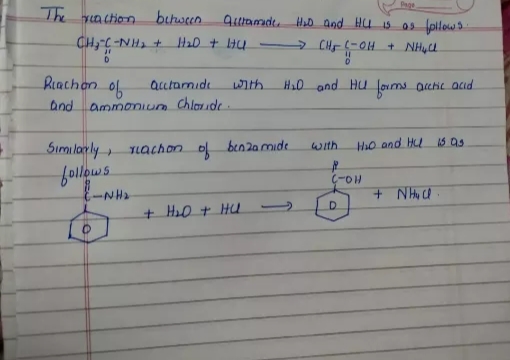 The reaction between acetamide H2O and HCl is as follows.
CH3-C-NH2 + H2O + HCl ⟶ CH3-C-OH + NH4Cl
O O
Reaction of acetamide with H2O and HCl forms acetic acid
and ammonium chloride.
Similarly, reaction of benzamide with H2O and HCl is as
follows
C-NH2 + H2O + HCl ⟶ C-OH + NH4Cl.